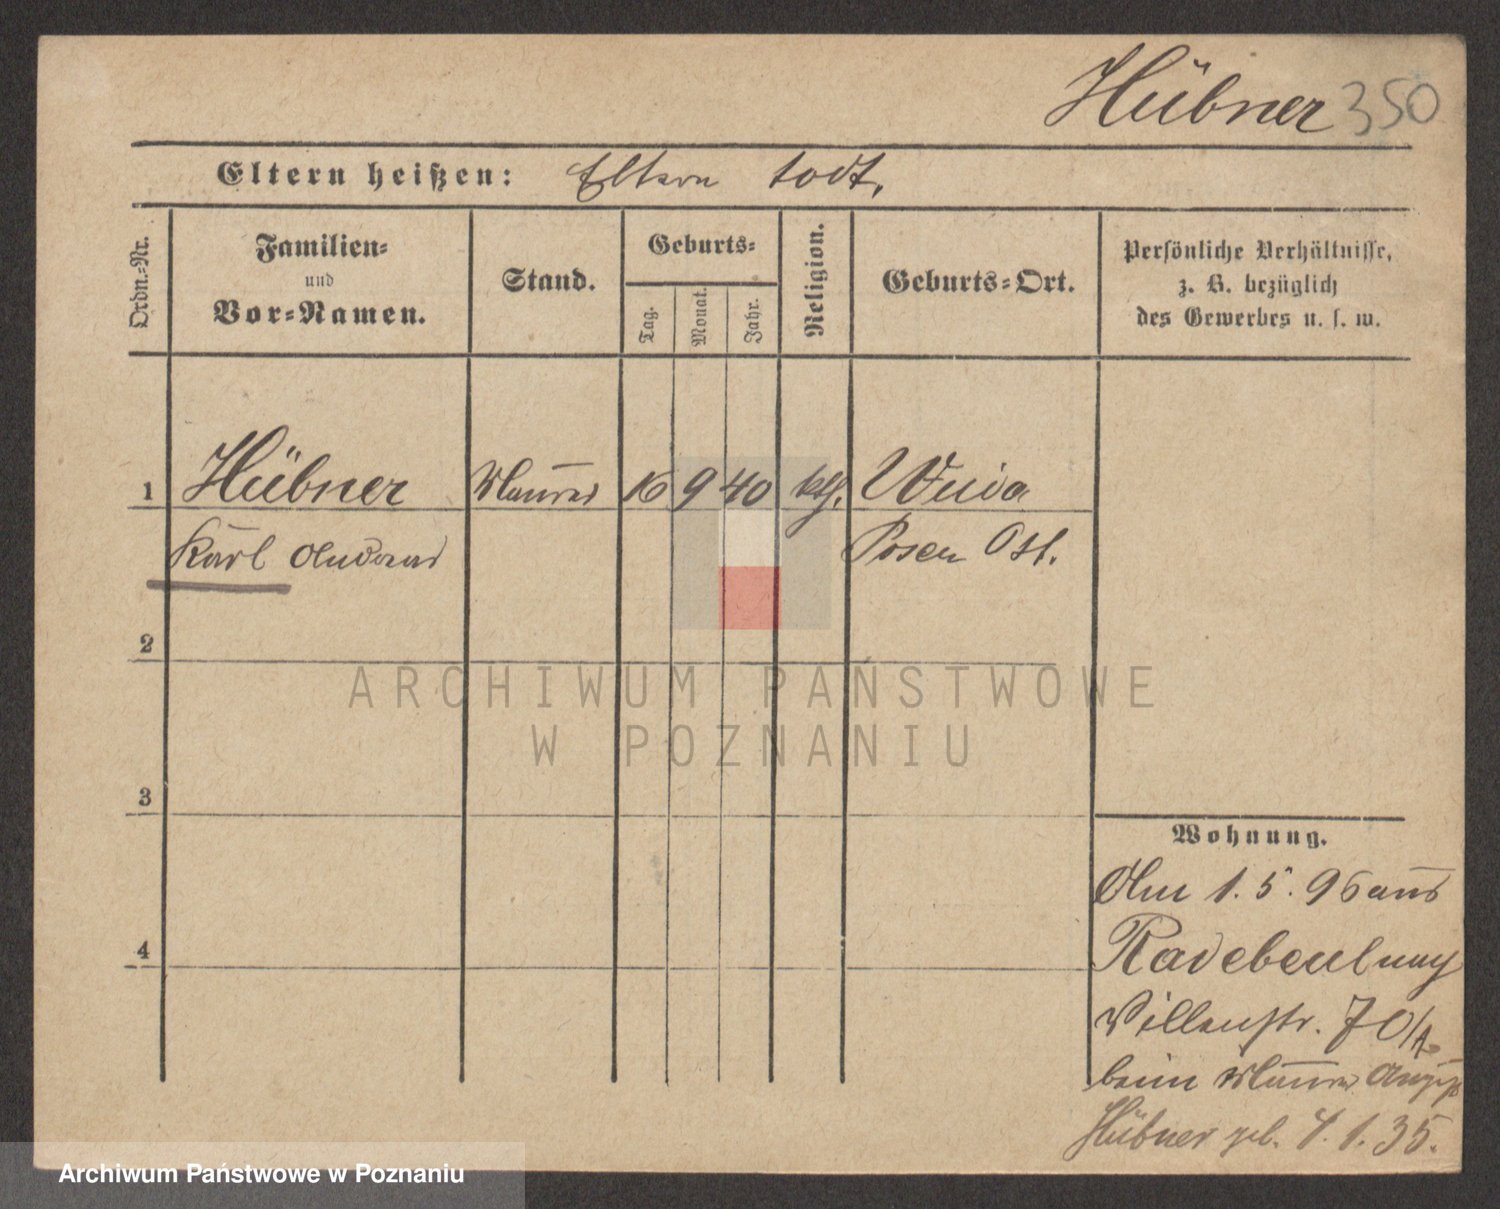 Hübner 350
Eltern heißen: Eltern todt.
Ordn.-Nr.
Familien-
und
Vor-Namen.
Stand.
Geburts-
Tag.
Monat.
Jahr.
Religion.
Geburts-Ort.
Persönliche Verhältnisse,
z. B. bezüglich
des Gewerbes u. s. w.
1 Hübner Maurer 16 9 40 ktl. Wuida
Karl Andreas Posen Ost.
2
3
4
ARCHIWUM PAŃSTWOWE
W POZNANIU
Wohnung.
Am 1. 5. 96 aus
Radebeul nach
Villenstr. 70/A.
beim Maurer August
Hübner geb. 4. 1. 35.
Archiwum Państwowe w Poznaniu